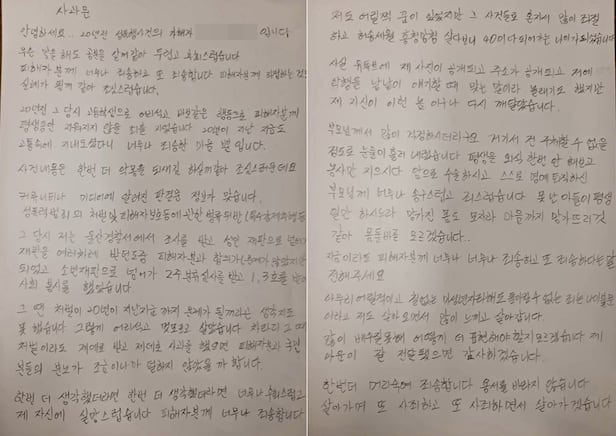 사과문
안녕하세요.. 20년전 성폭행사건의 가해자 입니다
무슨 말을 해도 공분을 살것같아 두렵고 후회스럽습니다
피해자분께 너무나 죄송하고 또 죄송합니다 피해자분께 직접하는 것도
실례가 될것 같아 조심스럽습니다.
20년전 그 당시 고등학생으로 어리석고 바보같은 행동으로 피해자분께
평생동안 지워지지 않을 죄를 지었습니다 20년이 지난 지금도
고통속에 지내오셨다니 너무나 죄송한 마음 뿐 입니다.
사건내용은 한번 더 악몽을 되새길 하실까같아 조심스러운데요
커뮤니티나 미디어에 알려진 판결문 정보가 맞습니다.
성폭력범죄의 처벌및 피해자보호등에 관한 법률위반(특수강제추행)
그 당시 저는 울산경찰서에서 조사를 받고 성인 재판으로 넘어가
재판을 여러차례 받던도중 피해자분과 합의(용서가 않았지만)
되었고 소년재판으로 넘어가 2주분류심사를 받고 1,3호를 받아
사회 봉사를 했었습니다.
그 땐 처벌이 20년이 지난지금 까지 문제가 될꺼라는 생각지도
못 했습니다 그렇게 어리석고 멋모르고 살았습니다 차라리 그 때
처벌이라도 제대로 받고 제대로 사과를 했으면 피해자분과 국민
분들의 분노가 조금이나마 덜하지 않았을까 합니다.
한번 더 생각했더라면 한번 더 생각했더라면 너무나 후회스럽고
제 자신이 실망스럽습니다 피해자분께 너무나 죄송합니다
저도 어릴적 꿈이 있었지만 그 사건들로 혼자서 많이 좌절
하고 허송세월 흥청망청 살다보니 40이 다되어가는 나이가 되었습니다
사실 유튜브에 제 사진이 공개되고 주소가 공개되고 저에
악행을 낱낱이 얘기할 때 맞는 말이라 놀래기도 했지만
제 자신이 이런 놈 이구나 다시 깨달았습니다.
부모님께서 많이 걱정하시더라구요 거기서 전 주체할 수 없을
정도로 눈물이 흘러 내렸습니다 평생을 외식 한번 안 해보고
농사만 지으시다 암으로 수술하시고 스스로 명예퇴직하신
부모님께 너무나 송구스럽고 죄스럽습니다 못 난 아들이 평생
일만 하시느라 망가진 몸도 모자라 마음까지 망가뜨리것
같아 몸둘바를 모르겠습니다..
지금이라도 피해자분께 너무나 너무나 죄송하고 또 죄송하다는 말
전해주세요
아무리 어릴적이고 철없는 미성년자라해도 용서될수 없는 죄는 나이불문
이라고 저도 살아오면서 많이 느끼고 살아왔습니다
많이 배우질 못해 어떻게 더 표현해야할지 모르겠습니다 제
마음이 잘 전달됐으면 감사하겠습니다.
한번더 머리숙여 죄송합니다 용서를 바라지 않습니다
살아가며 또 사죄하고 또 사죄하면서 살아가겠습니다